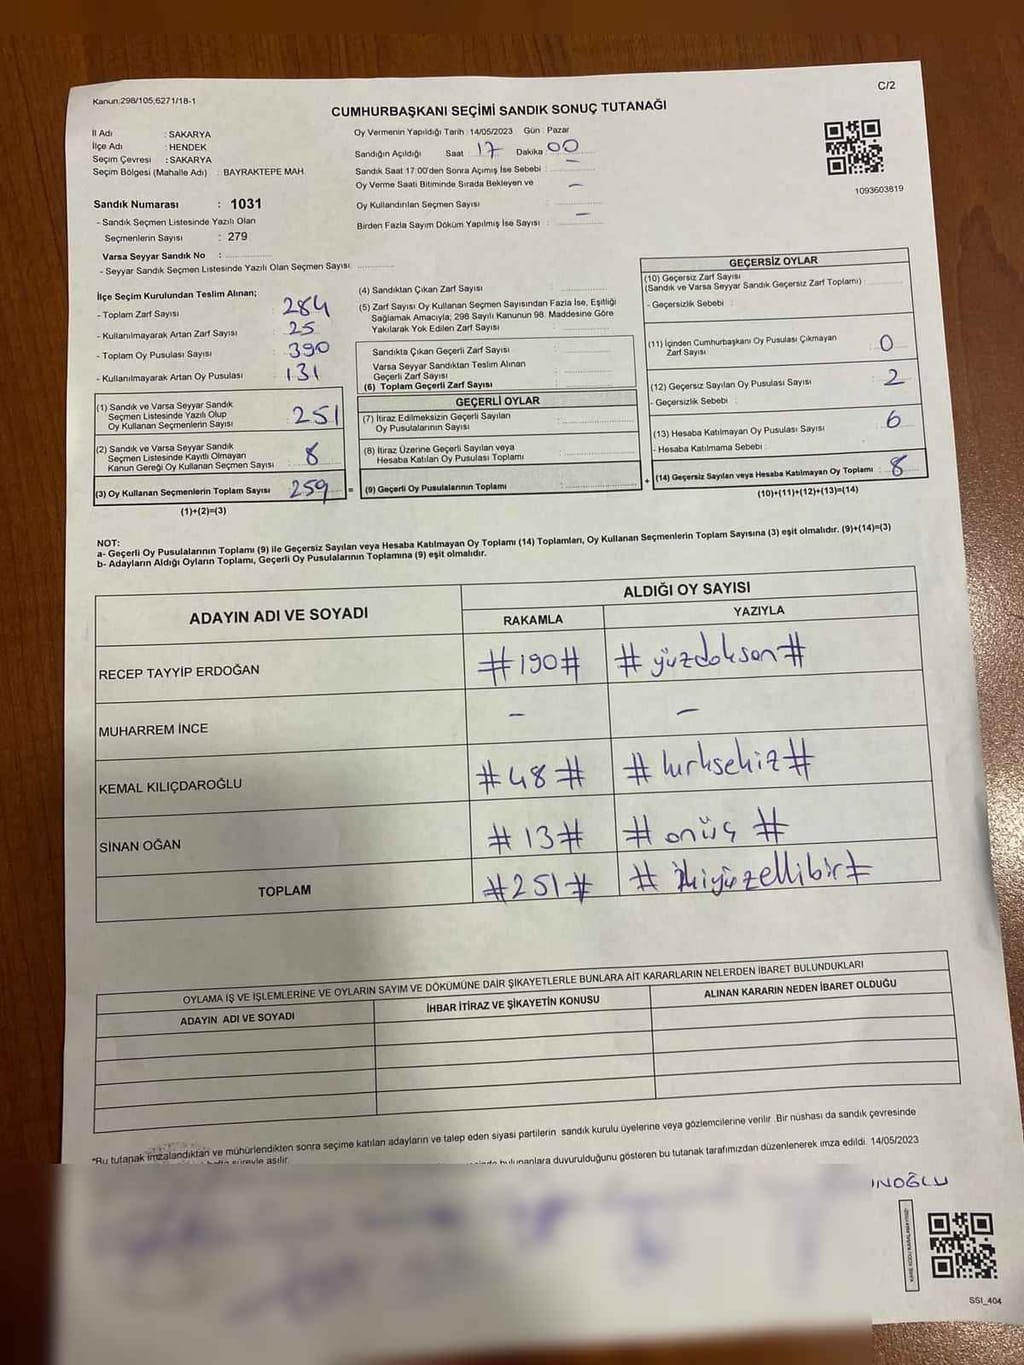 Kanun:298/105,6271/18-1
C/2
CUMHURBAŞKANI SEÇİMİ SANDIK SONUÇ TUTANAĞI
İl Adı : SAKARYA
İlçe Adı : HENDEK
Seçim Çevresi : SAKARYA
Seçim Bölgesi (Mahalle Adı) : BAYRAKTEPE MAH.
Oy Vermenin Yapıldığı Tarih : 14/05/2023 Gün : Pazar
Sandığın Açıldığı Saat 17 Dakika 00
Sandık Saat 17:00'den Sonra Açımış İse Sebebi : –
Oy Verme Saati Bitiminde Sırada Bekleyen ve
Oy Kullandırılan Seçmen Sayısı : –
Birden Fazla Sayım Döküm Yapılmış İse Sayısı : –
1093603819
Sandık Numarası : 1031
- Sandık Seçmen Listesinde Yazılı Olan
Seçmenlerin Sayısı : 279
Varsa Seyyar Sandık No :
- Seyyar Sandık Seçmen Listesinde Yazılı Olan Seçmen Sayısı:
İlçe Seçim Kurulundan Teslim Alınan;
- Toplam Zarf Sayısı : 284
- Kullanılmayarak Artan Zarf Sayısı : 25
- Toplam Oy Pusulası Sayısı : 390
- Kullanılmayarak Artan Oy Pusulası : 131
(1) Sandık ve Varsa Seyyar Sandık
Seçmen Listesinde Yazılı Olup
Oy Kullanan Seçmenlerin Sayısı : 251
(2) Sandık ve Varsa Seyyar Sandık
Seçmen Listesinde Kayıtlı Olmayan
Kanun Gereği Oy Kullanan Seçmen Sayısı : 8
(3) Oy Kullanan Seçmenlerin Toplam Sayısı : 259 =
(1)+(2)=(3)
(4) Sandıktan Çıkan Zarf Sayısı :
(5) Zarf Sayısı Oy Kullanan Seçmen Sayısından Fazla İse, Eşitliği
Sağlamak Amacıyla; 298 Sayılı Kanunun 98. Maddesine Göre
Yakılarak Yok Edilen Zarf Sayısı :
Sandıkta Çıkan Geçerli Zarf Sayısı :
Varsa Seyyar Sandıktan Teslim Alınan
Geçerli Zarf Sayısı :
(6) Toplam Geçerli Zarf Sayısı :
GEÇERLİ OYLAR
(7) İtiraz Edilmeksizin Geçerli Sayılan
Oy Pusulalarının Sayısı :
(8) İtiraz Üzerine Geçerli Sayılan veya
Hesaba Katılan Oy Pusulası Toplamı :
(9) Geçerli Oy Pusulalarının Toplamı : +
GEÇERSİZ OYLAR
(10) Geçersiz Zarf Sayısı
(Sandık ve Varsa Seyyar Sandık Geçersiz Zarf Toplamı) :
- Geçersizlik Sebebi :
(11) İçinden Cumhurbaşkanı Oy Pusulası Çıkmayan
Zarf Sayısı : 0
(12) Geçersiz Sayılan Oy Pusulası Sayısı : 2
- Geçersizlik Sebebi :
(13) Hesaba Katılmayan Oy Pusulası Sayısı : 6
- Hesaba Katılmama Sebebi :
(14) Geçersiz Sayılan veya Hesaba Katılmayan Oy Toplamı : 8
(10)+(11)+(12)+(13)=(14)
NOT:
a- Geçerli Oy Pusulalarının Toplamı (9) ile Geçersiz Sayılan veya Hesaba Katılmayan Oy Toplamı (14) Toplamları, Oy Kullanan Seçmenlerin Toplam Sayısına (3) eşit olmalıdır. (9)+(14)=(3)
b- Adayların Aldığı Oyların Toplamı, Geçerli Oy Pusulalarının Toplamına (9) eşit olmalıdır.
ADAYIN ADI VE SOYADI
ALDIĞI OY SAYISI
RAKAMLA YAZIYLA
RECEP TAYYİP ERDOĞAN #190# #yüzdoksan#
MUHARREM İNCE – –
KEMAL KILIÇDAROĞLU #48# #kırksekiz#
SİNAN OĞAN #13# #onüç#
TOPLAM #251# #ikiyüzellibir#
OYLAMA İŞ VE İŞLEMLERİNE VE OYLARIN SAYIM VE DÖKÜMÜNE DAİR ŞİKAYETLERLE BUNLARA AİT KARARLARIN NELERDEN İBARET BULUNDUKLARI
ADAYIN ADI VE SOYADI İHBAR İTİRAZ VE ŞİKAYETİN KONUSU ALINAN KARARIN NEDEN İBARET OLDUĞU
*Bu tutanak imzalandıktan ve mühürlendikten sonra seçime katılan adayların ve talep eden siyasi partilerin sandık kurulu üyelerine veya gözlemcilerine verilir. Bir nüshası da sandık çevresinde
süreyle asılır. bulunanlara duyurulduğunu gösteren bu tutanak tarafımızdan düzenlenerek imza edildi. 14/05/2023
INOĞLU
SSI_404